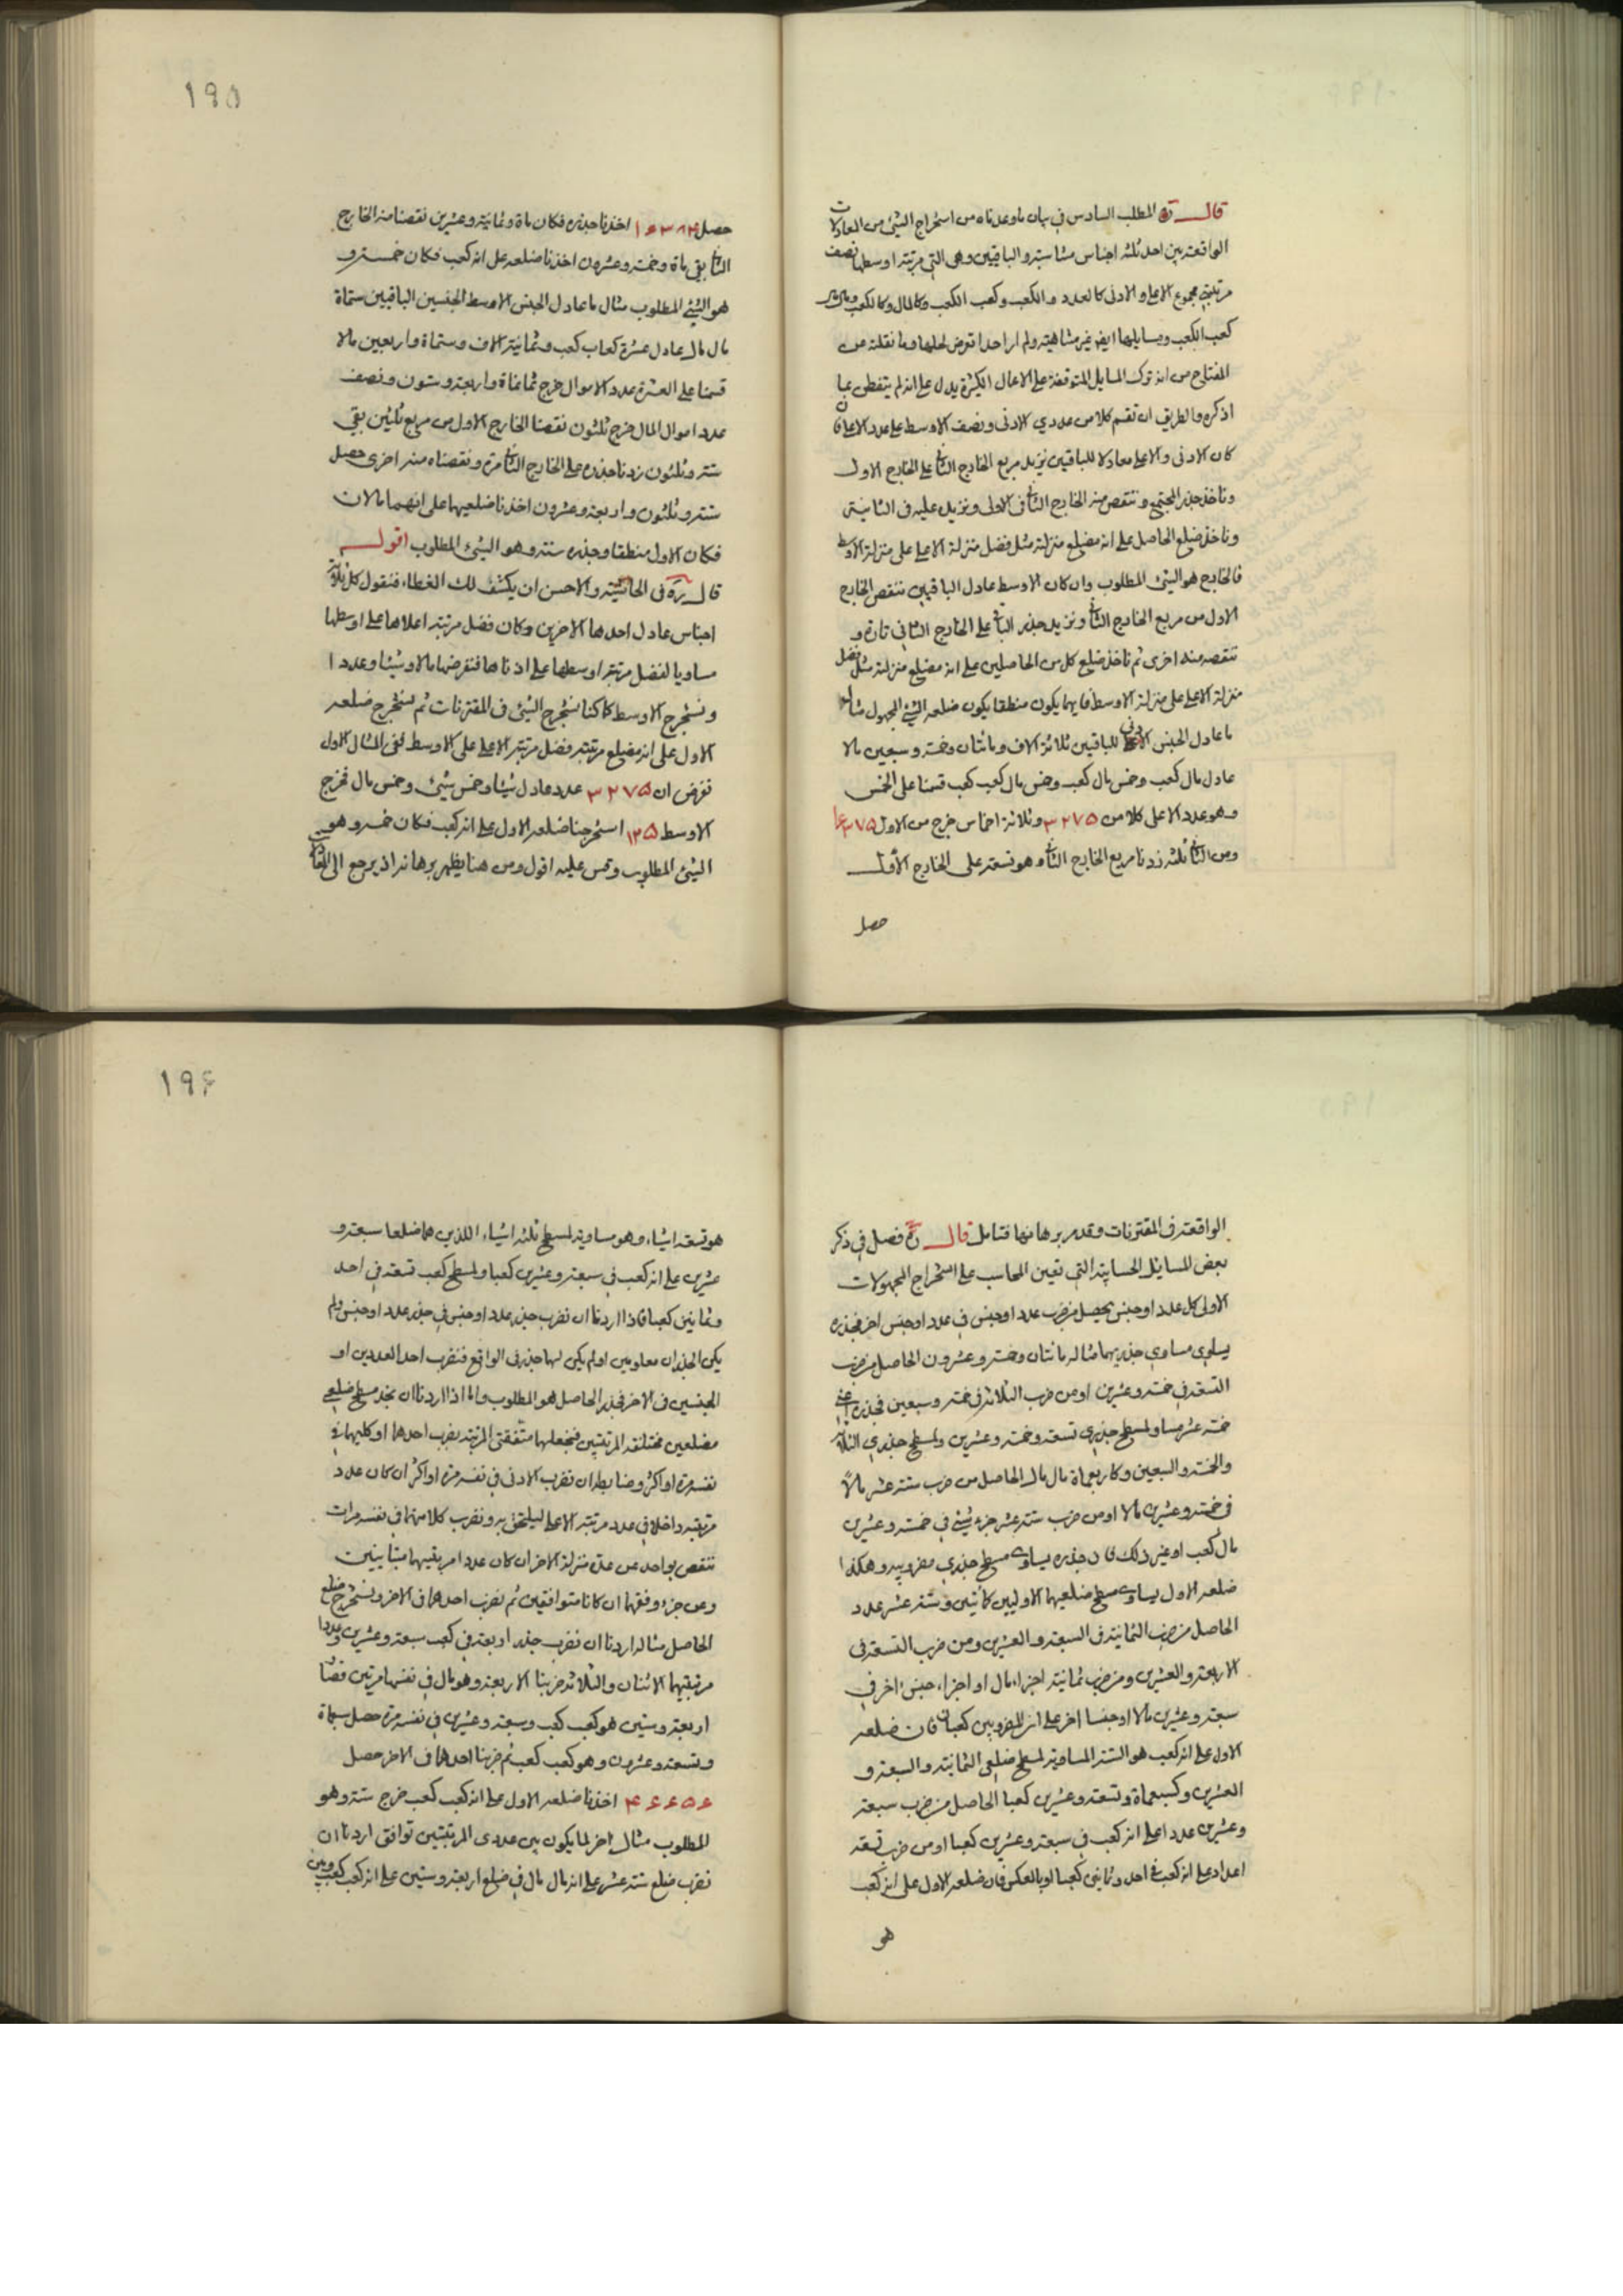 قال ره المطلب السادس في بيان ما وعدناه من استخراج الشئ من المعادلات
الواقعة بين احد ثلثه اجناس متناسبة والباقيين وهى التي مرتبة اوسطها نصف
مرتبتي مجموع الاعلى والادنى كالعدد والكعب وكعب الكعب وكالمال وكالكعب
كعب الكعب ومسايلها ايضا غير متناهيه ولم ار احدا تعرض لحلها وما نقلته عن
المفتاح من انه ترك المسايل المتوقفة على الاعمال الكثيرة يدل على انه لم يتفطن بما
اذكره والطريق ان تقسم كلا من عددي الادنى ونصف الاوسط على عدد الاعلى فان
كان الادنى والاعلى معادلا للباقيين نزيد مربع الخارج الثاني على الخارج الاول
وناخذ جذر المجتمع وننقص منه الخارج الثاني في الاولى ونزيد عليه في الثانية
وناخذ ضلع الحاصل على انه مضلع منزلة مثل فضل منزلة الاعلى على منزلة الاوسط
فالخارج هو الشئ المطلوب وان كان الاوسط عادل الباقيين ننقص الخارج
الاول من مربع الخارج الثاني ونزيد جذر الباقي على الخارج الثاني تارة و
ننقصه منه اخرى ثم ناخذ ضلع كل من الحاصلين على انه مضلع منزلة مثل فضل
منزلة الاعلى على منزلة الاوسط فايهما يكون منطقا يكون ضلعه الشئ المجهول مثاله
ما عادل الجنس الادنى للباقيين ثلاثة الاف ومائتان وخمسة وسبعين مالا
عادل مال كعب وخمس مال كعب وخمس مال كعب كعب قسمنا على الخمس
وهو عدد الاعلى كلا من ٣٢٧٥ وثلاثة اخماس خرج من الاول ١٦٣٧٥
ومن الثاني ثلثه زدنا مربع الخارج الثاني وهو تسعة على الخارج الأول
حصل
١٩٥
حصل ١٦٣٨٤ اخذنا جذره فكان ماة وثمانية وعشرين نقصنا منه الخارج
الثاني بقي ماة وخمسة وعشرون اخذنا ضلعه على انه كعب فكان خمسة و
هو الشئ المطلوب مثال ما عادل الجنس الاوسط الجنسين الباقيين ستماة
مال مال عادل عشرة كعاب كعب وثمانية الاف وستماة واربعين مالا
قسمنا على العشرة عدد الاموال خرج ثمانماة واربعة وستون ونصف
عدد اموال المال خرج ثلثون نقصنا الخارج الاول من مربع ثلثين بقي
ستة وثلثون زدنا جذره على الخارج الثاني مرة ونقصناه منه اخرى حصل
ستة وثلثون واربعة وعشرون اخذنا ضلعيهما على انهما مالان
فكان الاول منطقا وجذره ستة وهو الشئ المطلوب اقول
قال ره في الحاشية والاحسن ان يكشف لك الغطاء فنقول كل ثلثة
اجناس عادل احدها الاخرين وكان فضل مرتبة اعلاها على اوسطها
مساويا لفضل مرتبة اوسطها على ادناها فنفرضها مالا وشيئا وعددا
ونستخرج الاوسط كما كنا نستخرج الشئ في المقترنات ثم نستخرج ضلعه
الاول على انه مضلع مرتبته فضل مرتبة الاعلى على الاوسط ففى المثال الاول
نفرض ان ٣٢٧٥ عدد عادل شيئا وخمس شئ وخمس مال فخرج
الاوسط ١٢٥ استخرجنا ضلعه الاول على انه كعب فكان خمسة وهو
الشئ المطلوب وقس عليه اقول ومن هنا يظهر برهانه اذ يرجع الى
الواقعة في المقترنات وقد مر برهانها فتامل قال ره فصل في ذكر
بعض المسايل الحسابية التي تعين المحاسب على استخراج المجهولات
الاولى كل عدد او جنس يحصل من ضرب عدد او جنس في عدد او جنس اخر فجذره
يساوى مساوى جذريهما مثاله مائتان وخمسة وعشرون الحاصل من ضرب
التسعة في خمسة وعشرين او من ضرب الثلاثة في خمسة وسبعين فجذره اعني
خمسة عشر مساو لمسطح جذرى تسعة وخمسة وعشرين ولمسطح جذرى الثلثة
والخمسة والسبعين وكاربعماة مال مال الحاصل من ضرب ستة عشر مالًا
في خمسة وعشرين مالا او من ضرب ستة عشر جزء شئ في خمسة وعشرين
مال كعب او غير ذلك فان جذره يساوى مسطح جذرى مضروبيه وهكذا
ضلعه الاول يساوى مسطح ضلعيهما الاوليين كمأتين وستة عشر عدد
الحاصل من ضرب الثمانية في السبعة والعشرين ومن ضرب التسعة في
الاربعة والعشرين ومن ضرب ثمانية اجزاء مال او اجزاء جنس اخر في
سبعة وعشرين مالا او جنسا اخر على ان المضروبين كعبان فان ضلعه
الاول على انه كعب هو الستة المساوية لمسطح ضلعى الثمانية والسبعة و
العشرين وكسبعماة وتسعة وعشرين كعبا الحاصل من ضرب سبعة
وعشرين عددا على انه كعب في سبعة وعشرين كعبا او من ضرب تسعة
اعداد على انه كعب في احد وثمانين كعبا او بالعكس فان ضلعه الاول على انه كعب
هو
١٩٦
هو تسعة اشياء وهو مساوية لمسطح ثلثة اشياء اللذين هما ضلعا سبعة و
عشرين على انه كعب في سبعة وعشرين كعبا ولمسطح كعب تسعة في احد
وثمانين كعبا فاذا اردنا ان نضرب جذر عدد او جنس في جذر عدد او جنس ولم
يكن الجذران معلومين او لم يكن لهما جذر في الواقع فنضرب احد العددين او
الجنسين في الاخر فجذر الحاصل هو المطلوب واما اذا اردنا ان نجد مسطح ضلعى
مضلعين مختلفة المرتبتين فنجعلهما متفقتى المرتبة بضرب احدها او كليهما في
نفسه مرة او اكثر وضابطه ان نضرب الادنى في نفسه مرة او اكثر ان كان عدد
مرتبته داخلا في عدد مرتبة الاعلى ليلتحق به ونضرب كلا منهما في نفسه مرات
تنقص بواحد عن عدة منزلة الاخر ان كان عددا مرتبتيهما متباينين
وعن جزء وفقهما ان كانا متوافقين ثم نضرب احدهما في الاخر ونستخرج ضلع
الحاصل مثاله اردنا ان نضرب جذر اربعة في كعب سبعة وعشرين وعددا
مرتبتيهما الاثنان والثلاثة ضربنا الاربعة وهو مال في نفسها مرتين فصار
اربعة وستين هو كعب كعب وسبعة وعشرين في نفسه مرة حصل سبعماة
وتسعة وعشرون وهو كعب كعب ثم ضربنا احدهما في الاخر حصل
۴۶۶۵۶ اخذنا ضلعه الاول على انه كعب كعب خرج ستة وهو
المطلوب مثال اخر لما يكون بين عددى المرتبتين توافق اردنا ان
نضرب ضلع ستة عشر على انه مال مال في ضلع اربعة وستين على انه كعب كعب وبين